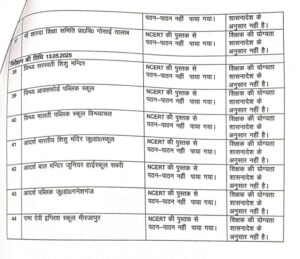 माँ शारदा शिक्षा समिति प्रा0वि0 गोसाई तालाब
पठन–पाठन नहीं पाया गया।
शासनादेश के
अनुसार नहीं है।
निरीक्षण की तिथि 13.05.2025
38 विन्ध्य सरस्वती शिशु मन्दिर
NCERT की पुस्तक से
पठन–पाठन नहीं पाया गया।
शिक्षक की योग्यता
शासनादेश के
अनुसार नहीं है।
39 विन्ध्य आक्सफोर्ड पब्लिक स्कूल
NCERT की पुस्तक से
पठन–पाठन नहीं पाया गया।
शिक्षक की योग्यता
शासनादेश के
अनुसार नहीं है।
40 विन्ध्य मालती पब्लिक स्कूल विन्ध्याचल
NCERT की पुस्तक से
पठन–पाठन नहीं पाया गया।
शिक्षक की योग्यता
शासनादेश के
अनुसार नहीं है।
41 आदर्श भारतीय शिशु मंदिर जू0हा0स्कूल
NCERT की पुस्तक से
पठन–पाठन नहीं पाया गया।
शिक्षक की योग्यता
शासनादेश के
अनुसार नहीं है।
42 आदर्श बाल मन्दिर जूनियर हाईस्कूल सबरी
NCERT की पुस्तक से
पठन–पाठन नहीं पाया गया।
शिक्षक की योग्यता
शासनादेश के
अनुसार नहीं है।
43 आदर्श पब्लिक जू0हा0गनेशगंज
NCERT की पुस्तक से
पठन–पाठन नहीं पाया गया।
शिक्षक की योग्यता
शासनादेश के
अनुसार नहीं है।
44 रमा देवी इग्लिश स्कूल मीरजापुर
NCERT की पुस्तक से
पठन–पाठन नहीं पाया गया।
शिक्षक की योग्यता
शासनादेश के
अनुसार नहीं है।